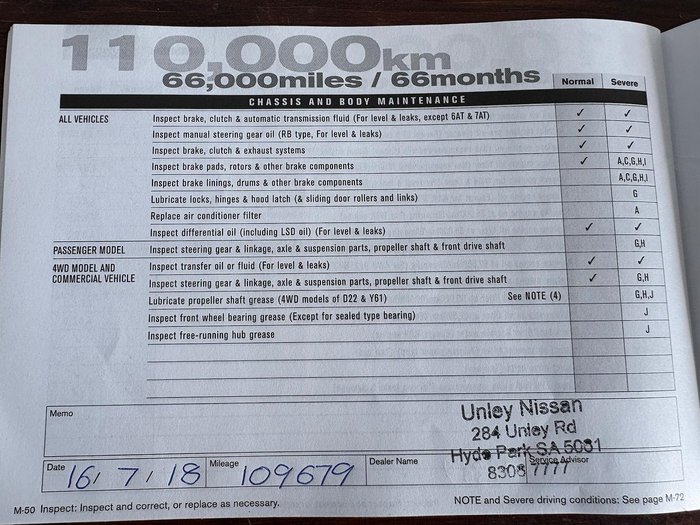 110,000km
66,000miles / 66months
Normal Severe
CHASSIS AND BODY MAINTENANCE
ALL VEHICLES Inspect brake, clutch & automatic transmission fluid (For level & leaks, except 6AT & 7AT) ✓ ✓
Inspect manual steering gear oil (RB type, For level & leaks) ✓ ✓
Inspect brake, clutch & exhaust systems ✓ ✓
Inspect brake pads, rotors & other brake components ✓ A,C,G,H,I
Inspect brake linings, drums & other brake components A,C,G,H,I
Lubricate locks, hinges & hood latch (& sliding door rollers and links) G
Replace air conditioner filter A
Inspect differential oil (including LSD oil) (For level & leaks) ✓ ✓
PASSENGER MODEL Inspect steering gear & linkage, axle & suspension parts, propeller shaft & front drive shaft G,H
4WD MODEL AND Inspect transfer oil or fluid (For level & leaks) ✓ ✓
COMMERCIAL VEHICLE Inspect steering gear & linkage, axle & suspension parts, propeller shaft & front drive shaft ✓ G,H
Lubricate propeller shaft grease (4WD models of D22 & Y61) See NOTE (4) G,H,J
Inspect front wheel bearing grease (Except for sealed type bearing) J
Inspect free-running hub grease J
Memo
Unley Nissan
284 Unley Rd
Hyde Park SA 5061
8308 7777
Date 16/ 7 / 18 Mileage 109679 Dealer Name Service Advisor
M-50 Inspect: Inspect and correct, or replace as necessary. NOTE and Severe driving conditions: See page M-72